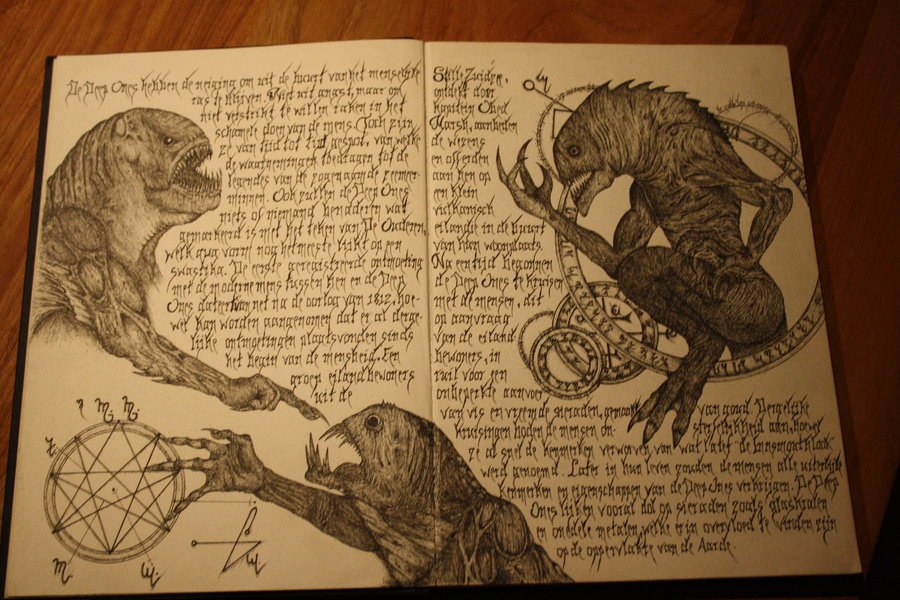 De Deep Ones hebben de neiging om uit de buurt van het menselijke
ras te blijven. Niet uit angst, maar om
niet verstrikt te willen raken in het
schamele doen van de mens. Toch zijn
ze van tijd tot tijd gespot, van welke
de waarnemingen toedragen tot de
legendes van de zogenaamde zeemeer-
minnen. Ook zullen de Deep Ones
niets of niemand benaderen wat
gemarkeerd is met het teken van De Ouderen,
welk qua vorm nog het meeste lijkt op een
swastika. De eerste geregistreerde ontmoeting
met de moderne mens tussen hen en de Deep
Ones dateert van net na de oorlog van 1812, hoe-
wel kan worden aangenomen dat er al derge-
lijke ontmoetingen plaatsvonden sinds
het begin van de mensheid. Een
groep eilandbewoners
uit de
Stille Zuidzee,
ontdekt door
kapitein Obed
Marsh, aanbeden
de wezens
en offerden
aan hen op
een klein
vulkanisch
eilandje in de buurt
van hun woonplaats.
Na een tijd begonnen
de Deep Ones te kruisen
met de mensen, dit
op aanvraag
van de eiland-
bewoners, in
ruil voor een
onbeperkte aanvoer
van vis en vreemde sieraden, gemaakt van goud. Dergelijke
kruisingen boden de mensen on- sterfelijkheid aan, hoewel
ze al snel de kenmerken verworven van wat later "de Innsmouth look"
werd genoemd. Later in hun leven zouden de mensen alle uiterlijke
kenmerken en eigenschappen van de Deep Ones verkrijgen. De Deep
Ones lijken vooral dol op sieraden zoals glaskralen
en onedele metalen, welke er in overvloed te vinden zijn
op de oppervlakte van de Aarde.